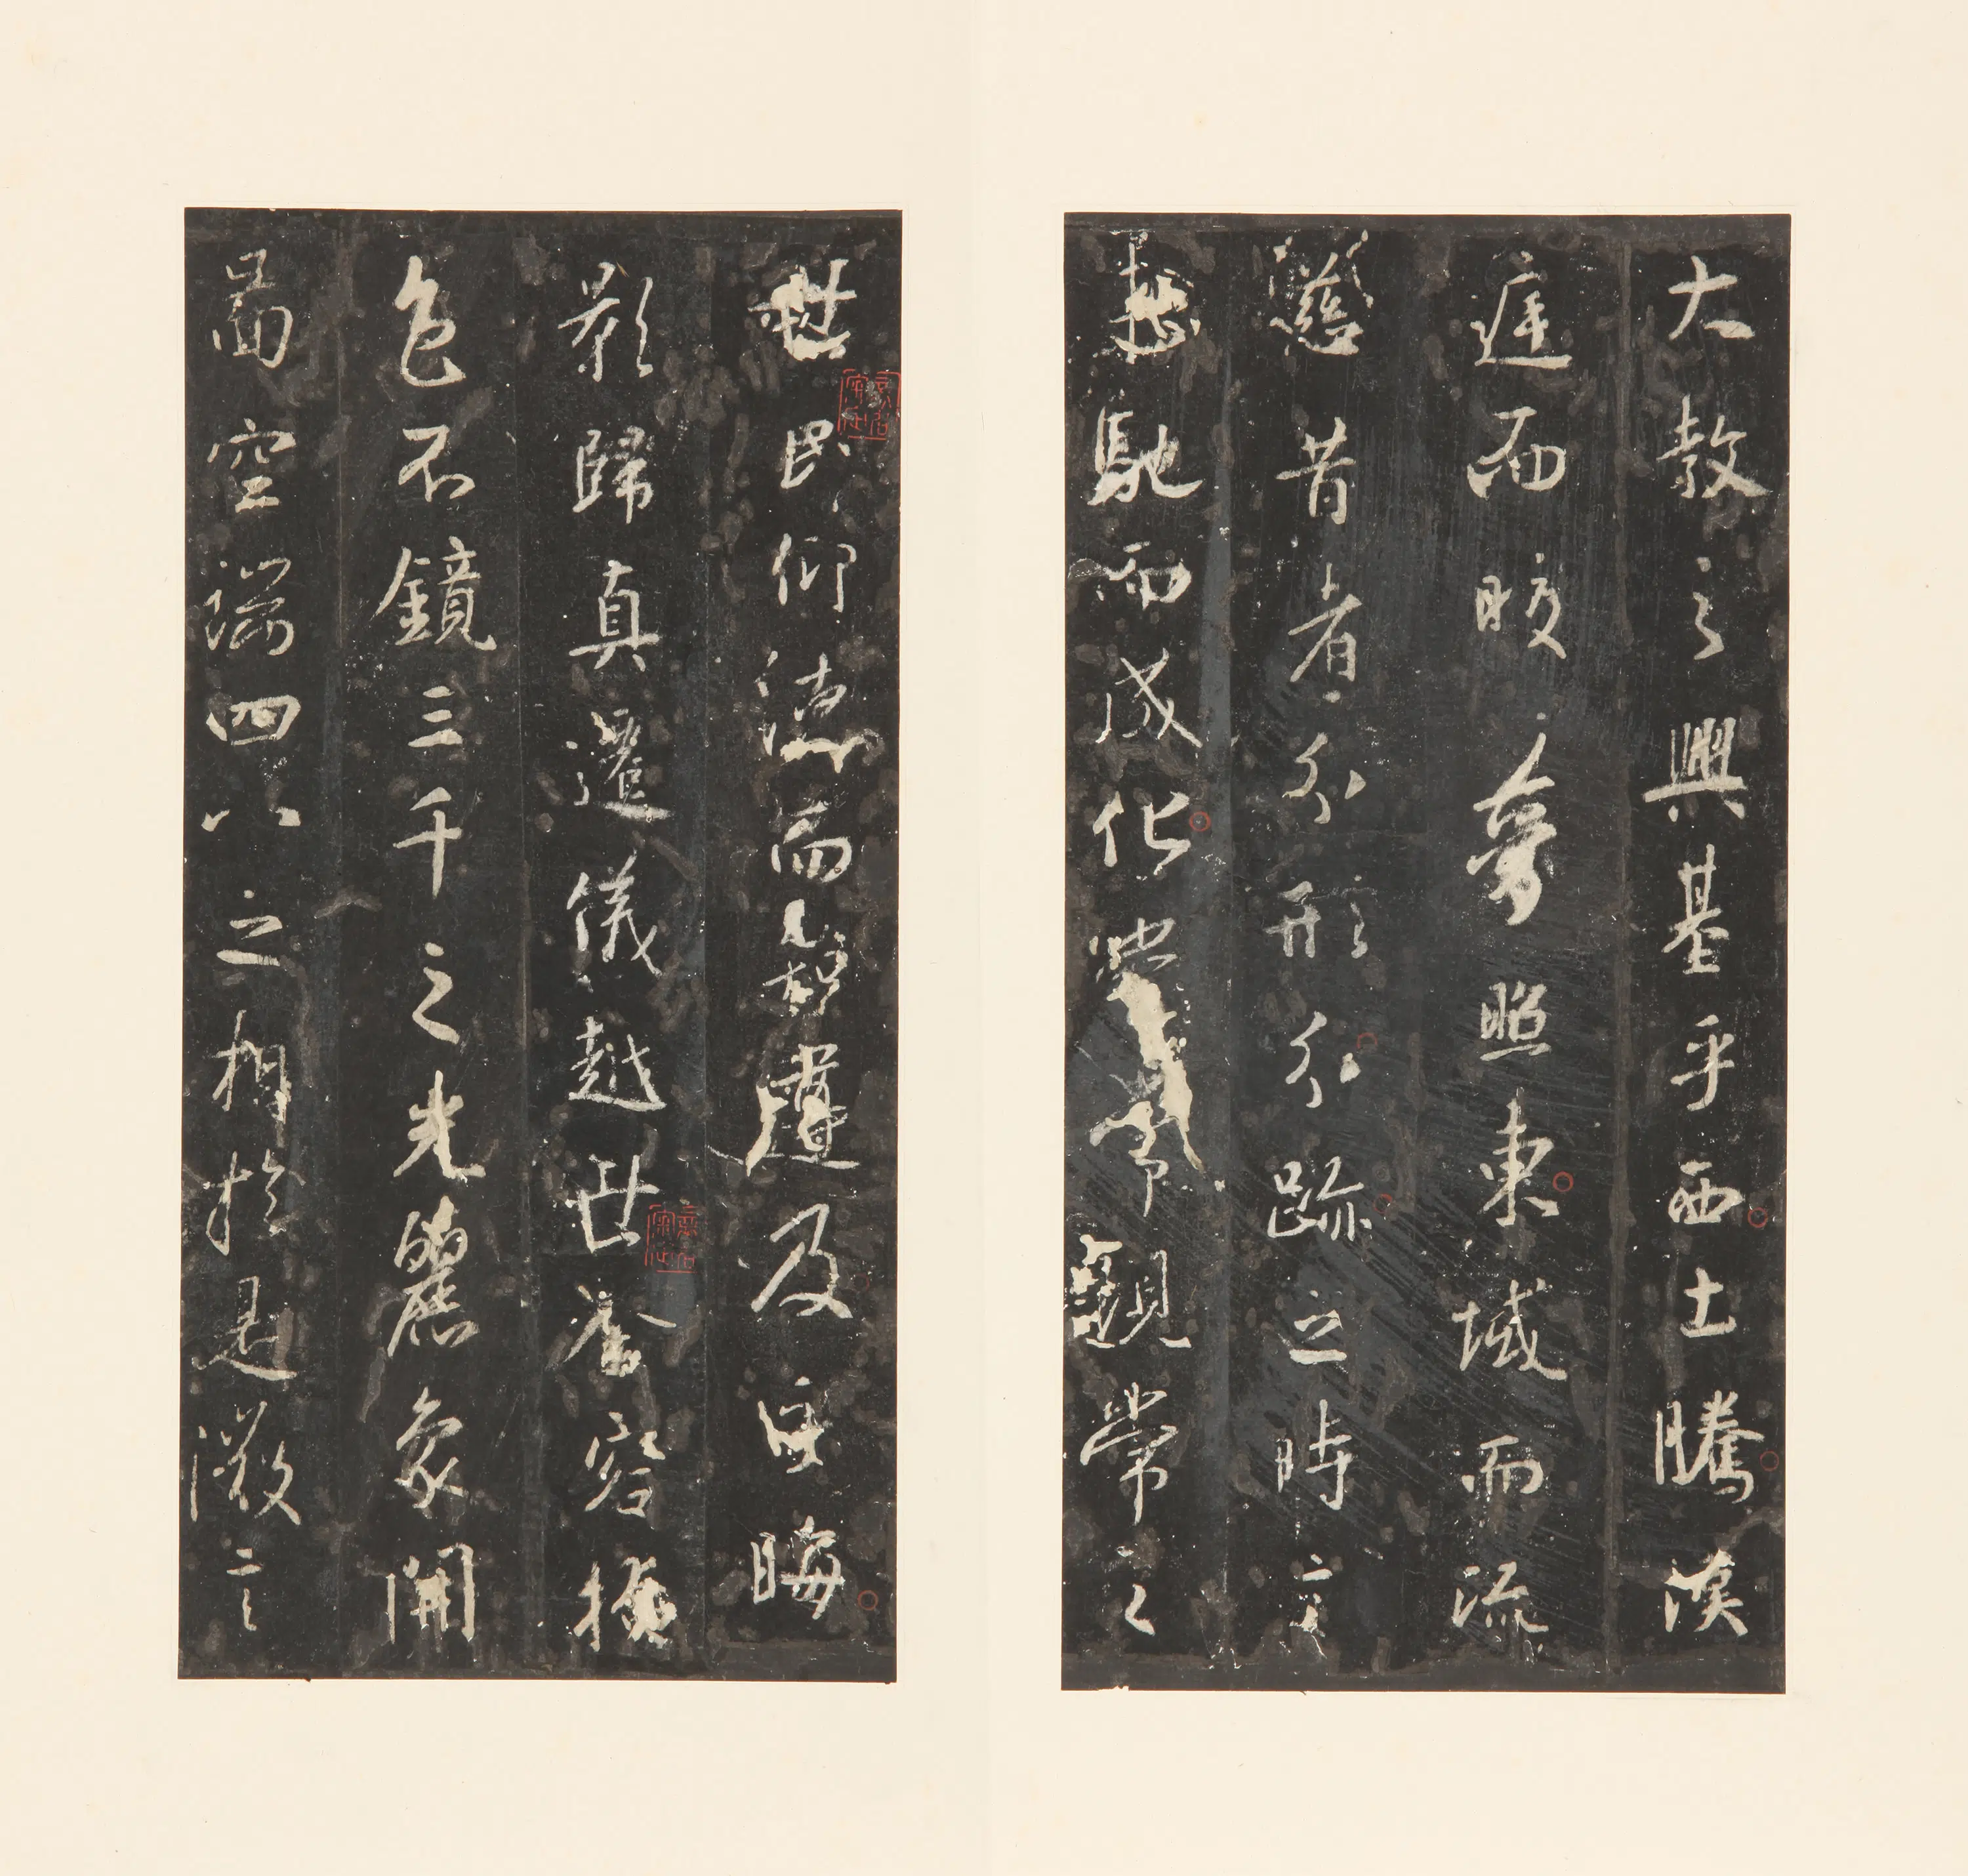 大教之興基乎西土騰漢
庭而皎夢照東域而流
慈昔者分形分跡之時言
未馳而成化當常現常之
世民仰德而知遵及乎晦
影歸真遷儀越世金容掩
色不鏡三千之光麗象開
圖空端四八之相於是微言